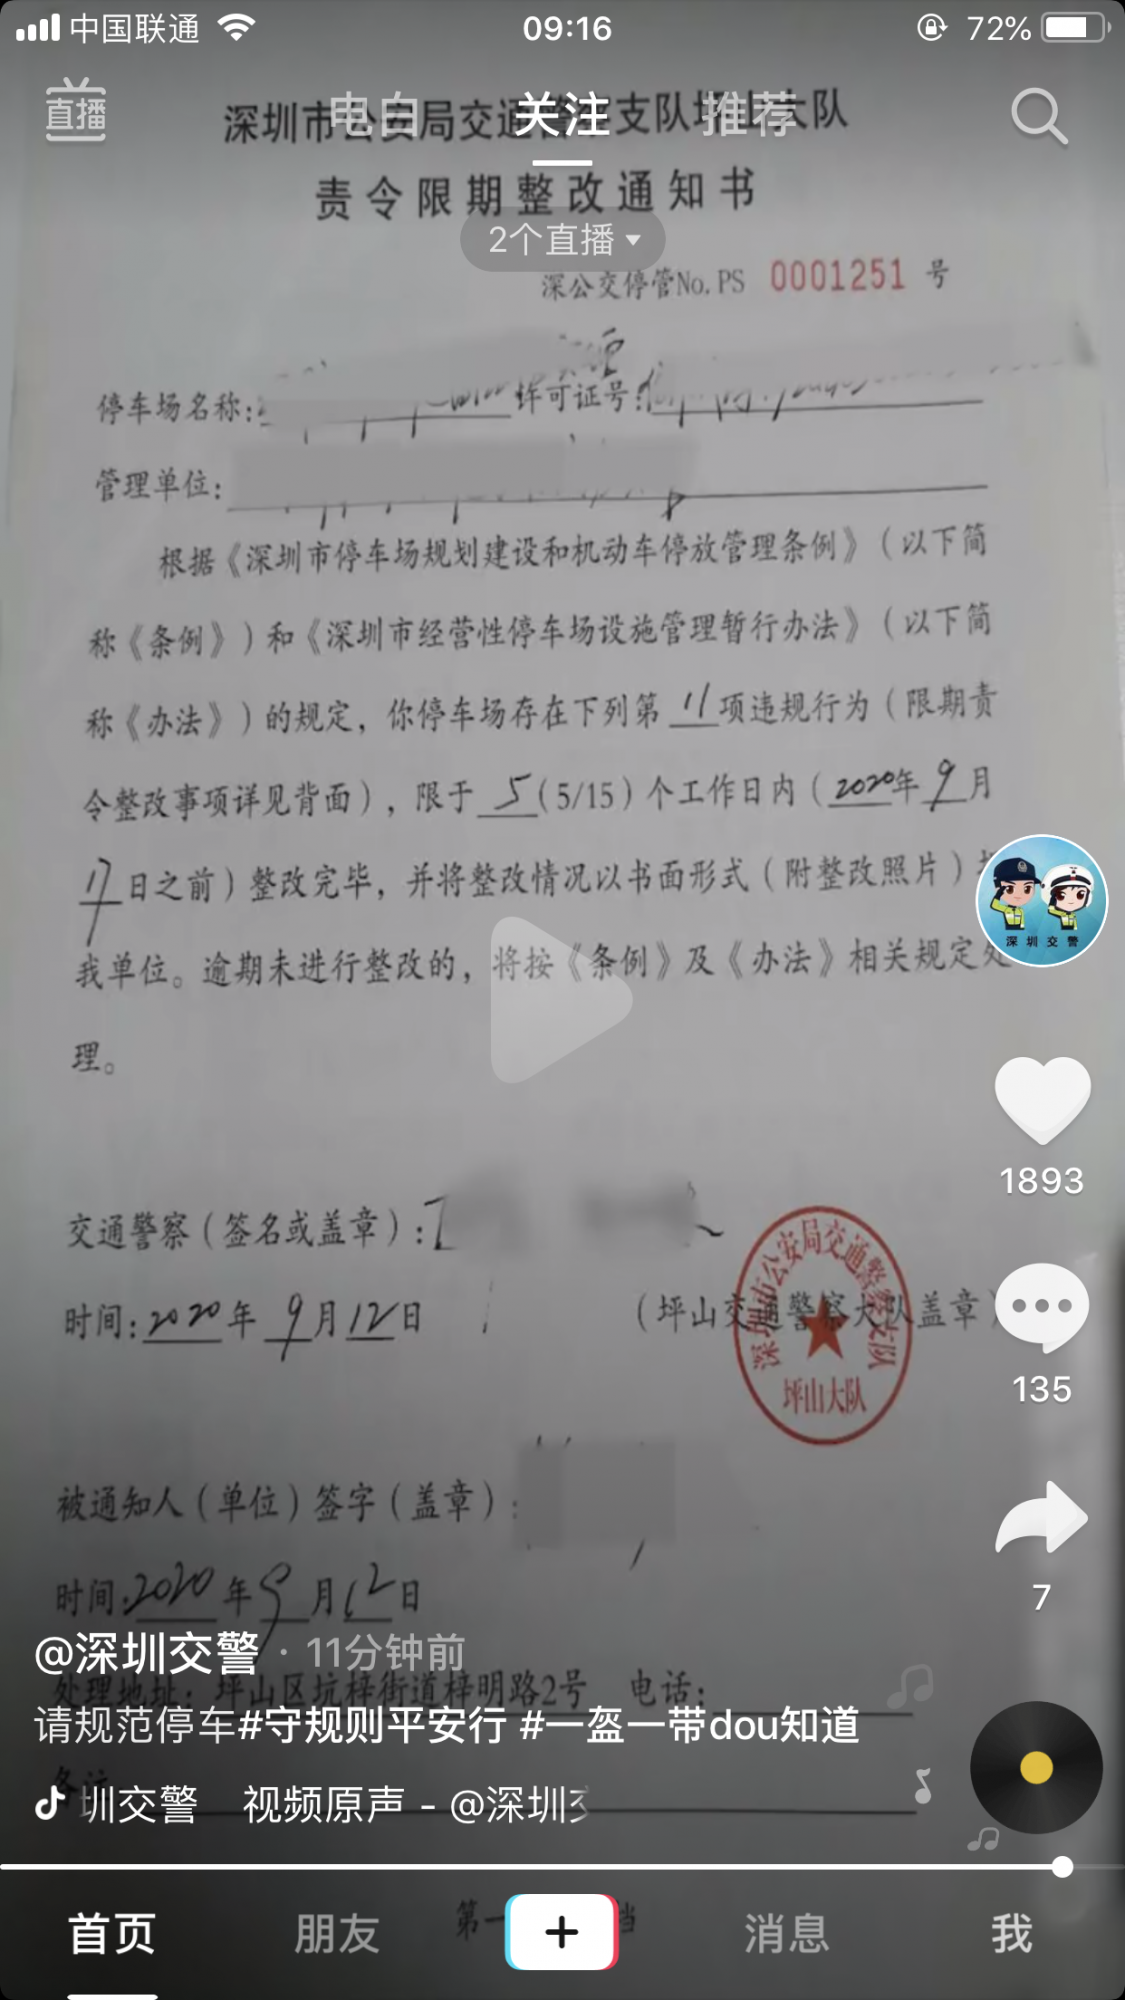 中国联通 09:16 72%
直播 电白 关注 推荐
深圳市公安局交通警察支队坪山大队
责令限期整改通知书
2个直播
深公交停管No.PS 0001251 号
停车场名称: 许可证号:
管理单位:
根据《深圳市停车场规划建设和机动车停放管理条例》(以下简
称《条例》)和《深圳市经营性停车场设施管理暂行办法》(以下简
称《办法》)的规定,你停车场存在下列第 11 项违规行为(限期责
令整改事项详见背面),限于 5 (5/15)个工作日内(2020年 9 月
17 日之前)整改完毕,并将整改情况以书面形式(附整改照片)
我单位。逾期未进行整改的,将按《条例》及《办法》相关规定处
理。
深圳交警
1893
交通警察(签名或盖章):
深圳市公安局交通警察支队
坪山大队
时间:2020年 9 月12日 (坪山交通警察大队盖章)
135
被通知人(单位)签字(盖章):
时间:2020年 9 月12日
7
@深圳交警 · 11分钟前
处理地址: 坪山区坑梓街道梓明路2号 电话:
请规范停车#守规则平安行 #一盔一带dou知道
备注
圳交警 视频原声 - @深圳交
第一 档
首页 朋友 + 消息 我